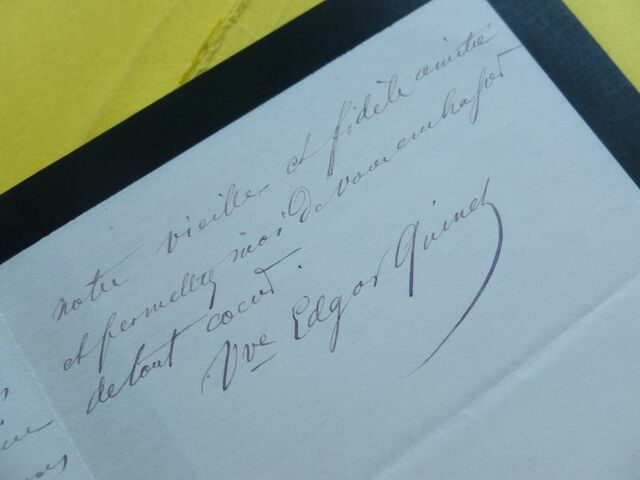 notre vieille et fidèle amitié
et permettez moi de vous embrasser
de tout coeur.
Vve Edgar Quinet